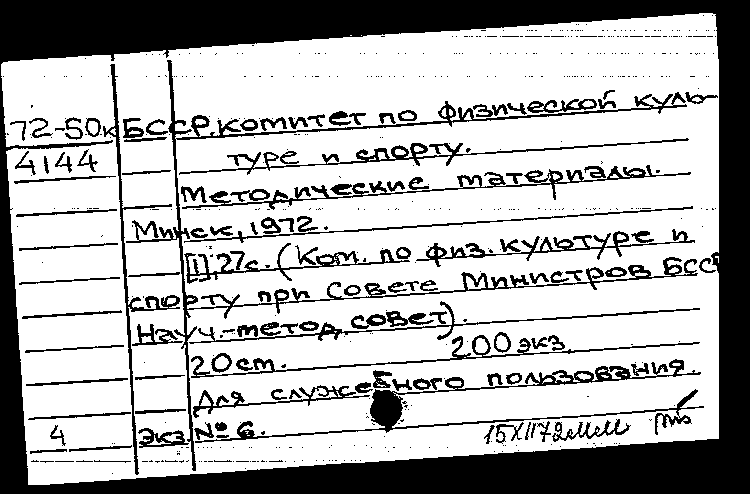 72-50к БССР. Комитет по физической куль-
4144 туре и спорту.
Методические материалы.
Минск, 1972.
[I], 27с. (Ком. по физ. культуре и
спорту при Совете Министров БССР
Науч.-метод. совет).
20 ст. 200 экз.
Для служебного пользования.
4 Экз. № 6.